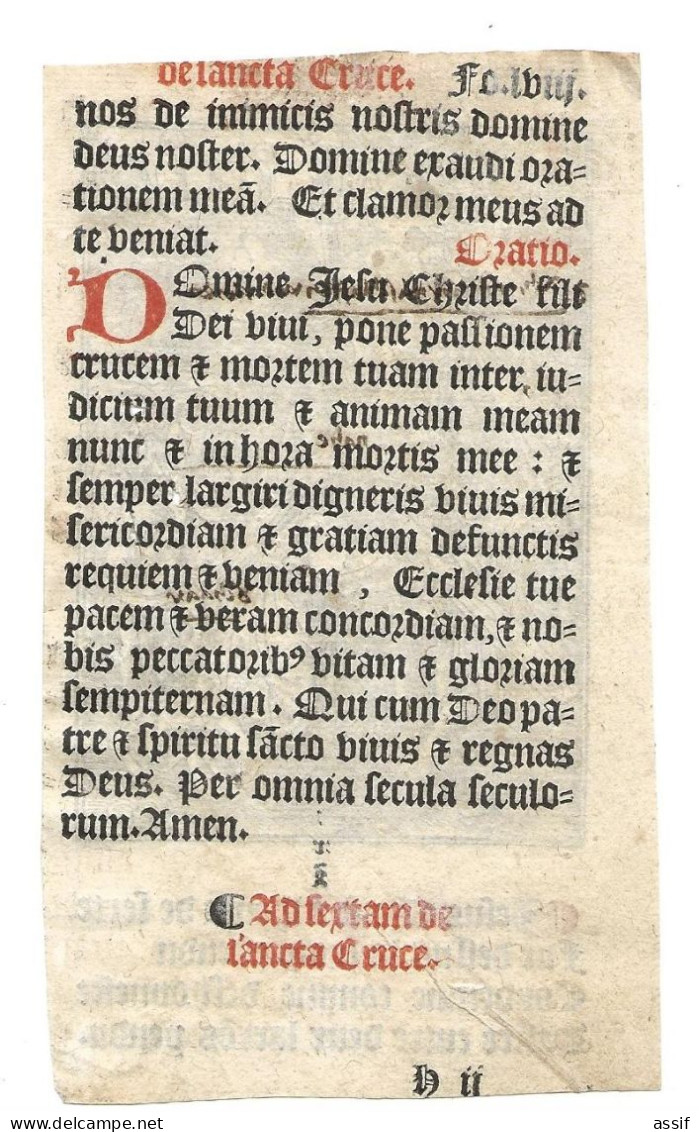 de sancta Cruce. Fo. lviij.
nos de inimicis nostris domine
deus noster. Domine exaudi ora=
tionem meā. Et clamor meus ad
te veniat. Oratio.
DOmine Jesu Christe fili
Dei viui, pone passionem
crucem & mortem tuam inter iu=
dicium tuum & animam meam
nunc & in hora mortis mee : &
semper largiri digneris viuis mi=
sericordiam & gratiam defunctis
requiem & veniam , Ecclesie tue
pacem & veram concordiam, & no=
bis peccatoribꝰ vitam & gloriam
sempiternam. Qui cum Deo pa=
tre & spiritu sācto viuis & regnas
Deus. Per omnia secula seculo=
rum. Amen.
¶ Ad sextam de
sancta Cruce.
h ij